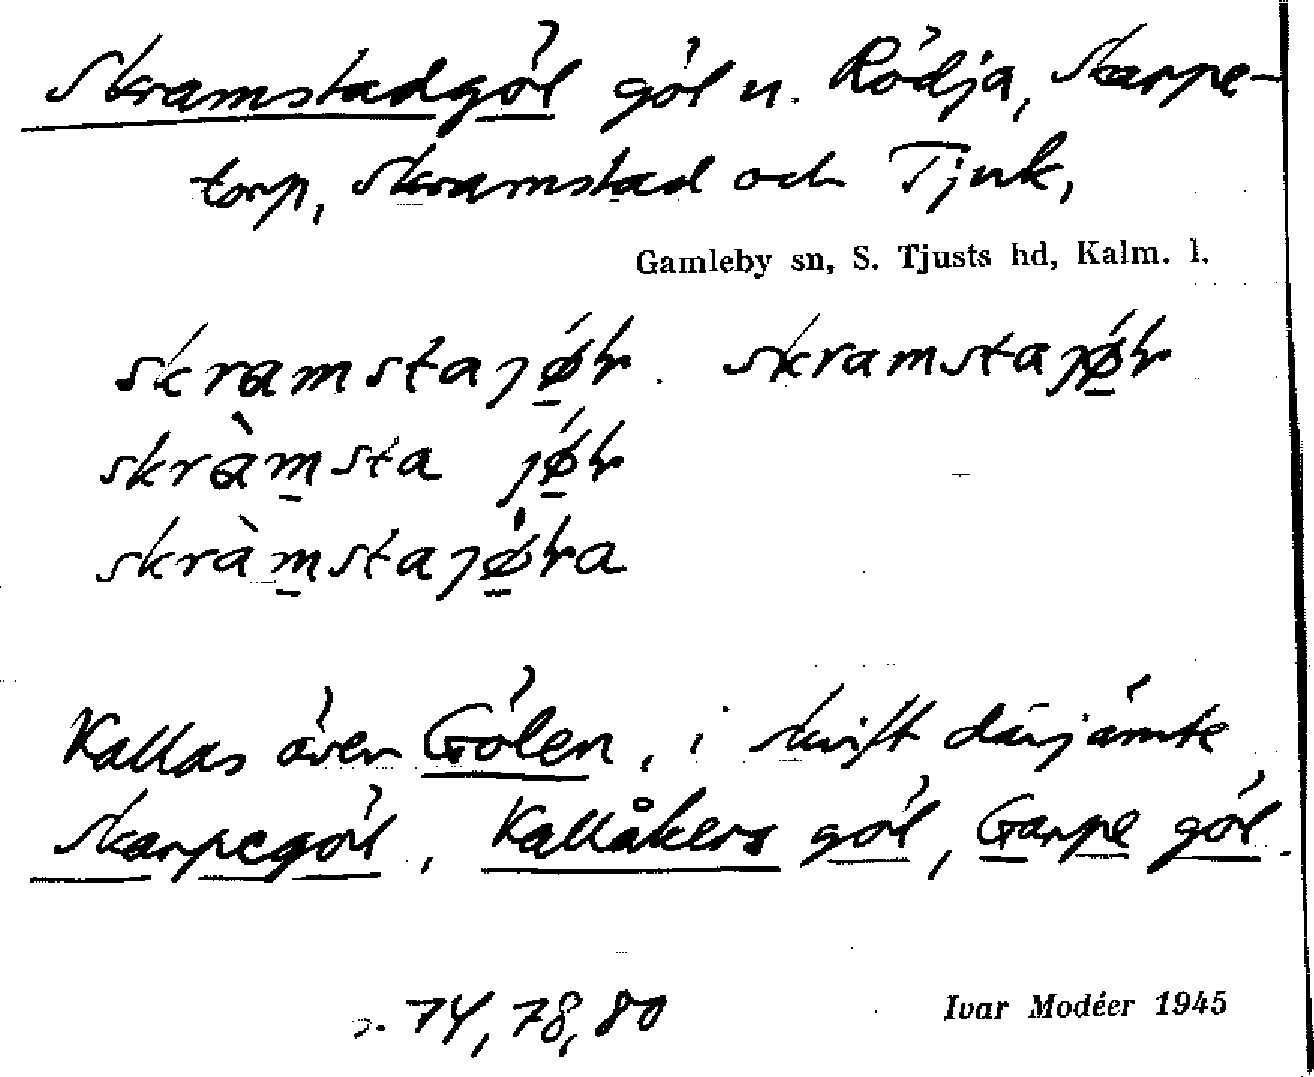 Skramstadgöl göl u. Rödja, Skarpe-
torp, Skramstad och Tjuk,
Gamleby sn, S. Tjusts hd, Kalm. l.
skramstajǿ̲ɫr skramstajǿ̲ɫr
skràm̲sta jǿ̲ɫr
skràm̲stajø̲̀ɫra
Kallas även Gölen, i skrift därjämte
Skarpegöl, Kallåkers göl, Garpe göl.
s. 74, 78, 80
Ivar Modéer 1945